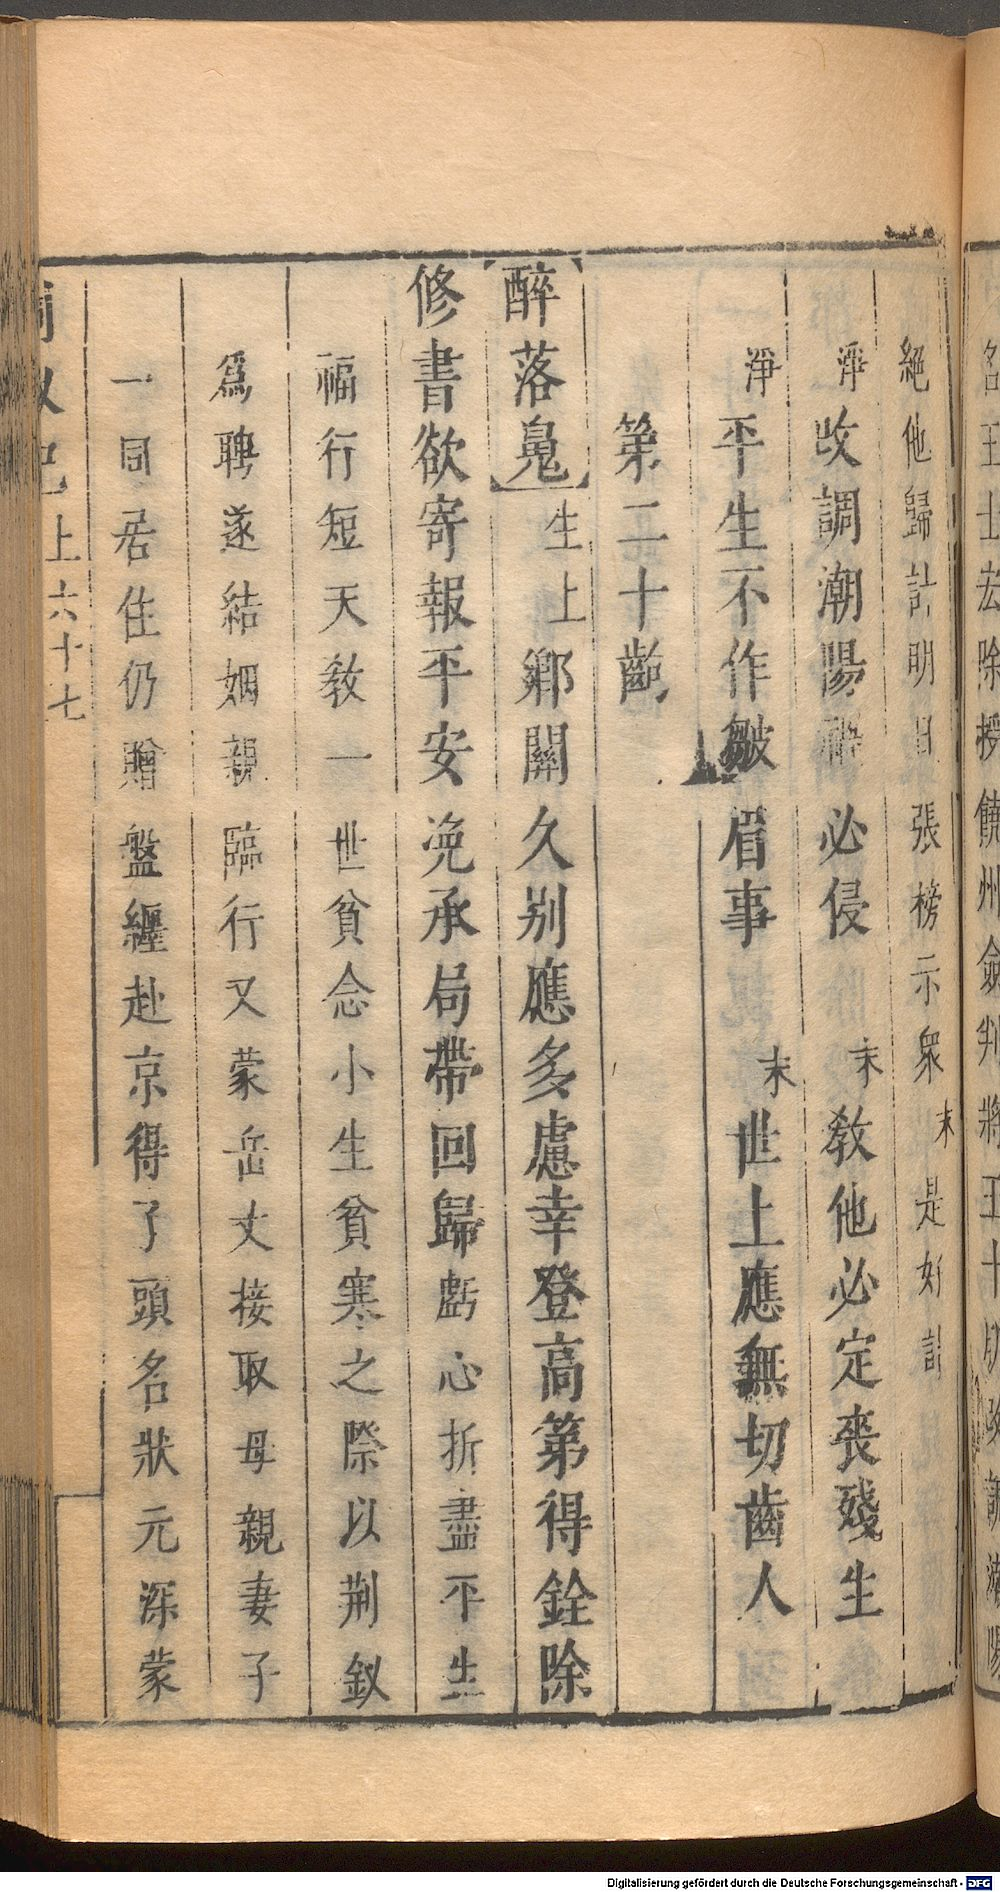 名王士宏除授饒州僉判將王十朋改調潮陽
絕他歸計明日張榜示衆末是好計
淨改調潮陽必侵末教他必定喪殘生
淨平生不作皺眉事末世上應無切齒人
第二十齣
醉落鬼生上鄉關久别應多慮幸登高第得銓除
修書欲寄報平安凂承局帶回歸虧心折盡平生
福行短天教一世貧念小生貧寒之際以荆釵
爲聘遂結姻親臨行又蒙岳丈接取母親妻子
一同居住仍贈盤纏赴京得了頭名狀元深蒙
上六十七
Digitalisierung gefördert durch die Deutsche Forschungsgemeinschaft - DFG